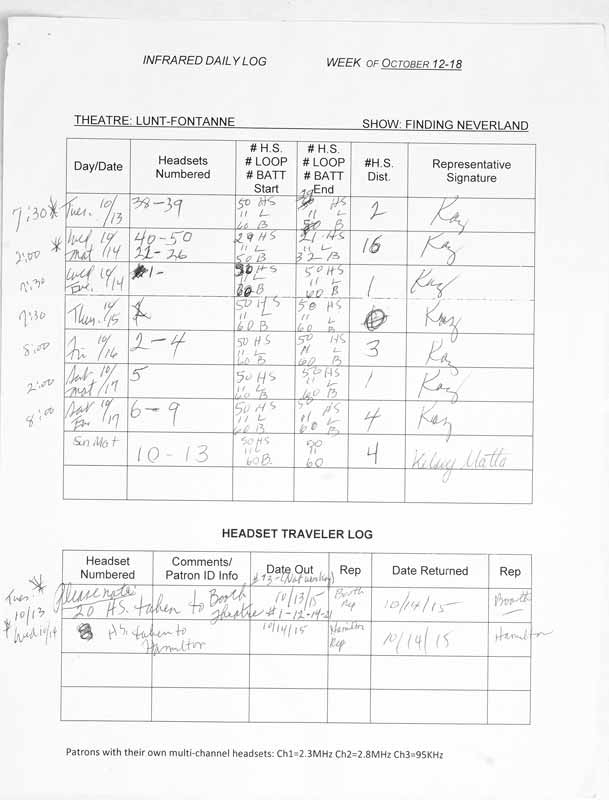 INFRARED DAILY LOG WEEK OF OCTOBER 12-18
THEATRE: LUNT-FONTANNE SHOW: FINDING NEVERLAND
Day/Date Headsets Numbered # H.S. # LOOP # BATT Start # H.S. # LOOP # BATT End #H.S. Dist. Representative Signature
7:30 * Tues. 10/13 38-39 50 HS 11 L 60 B 11 L 2 Kaz
2:00 * Wed mat 10/14 40-50 21-26 29 HS 11 L 50 B 21 HS 11 L 32 B 16 Kaz
7:30 Wed Eve. 10/14 1- HS 11 L 60 B 50 HS 11 L 60 B 1 Kaz
7:30 Thu. 10/15 50 HS 11 L 60 B 50 HS 11 L 60 B 0 Kaz
8:00 Fri 10/16 2-4 50 HS 11 L 60 B 50 HS 11 L 60 B 3 Kaz
2:00 Sat mat 10/17 5 50 HS 11 L 60 B 50 HS 11 L 60 B 1 Kaz
8:00 Sat Eve 10/17 6-9 50 HS 11 L 60 B 50 HS 11 L 60 B 4 Kaz
Sun Mat 10-13 50 HS 11 L 60 B. 50 11 60 4 Kelsey Matta
HEADSET TRAVELER LOG
Headset Numbered Comments/ Patron ID Info Date Out Rep Date Returned Rep
Tues. * 10/13 Please note: 20 H.S. taken to Booth Theatre #1-12-14-21 #13-(Not working) 10/13/15 Booth Rep 10/14/15 Booth
* Wed 10/14 8 H.S. taken to Hamilton 10/14/15 Hamilton Rep 10/14/15 Hamilton
Patrons with their own multi-channel headsets: Ch1=2.3MHz Ch2=2.8MHz Ch3=95KHz